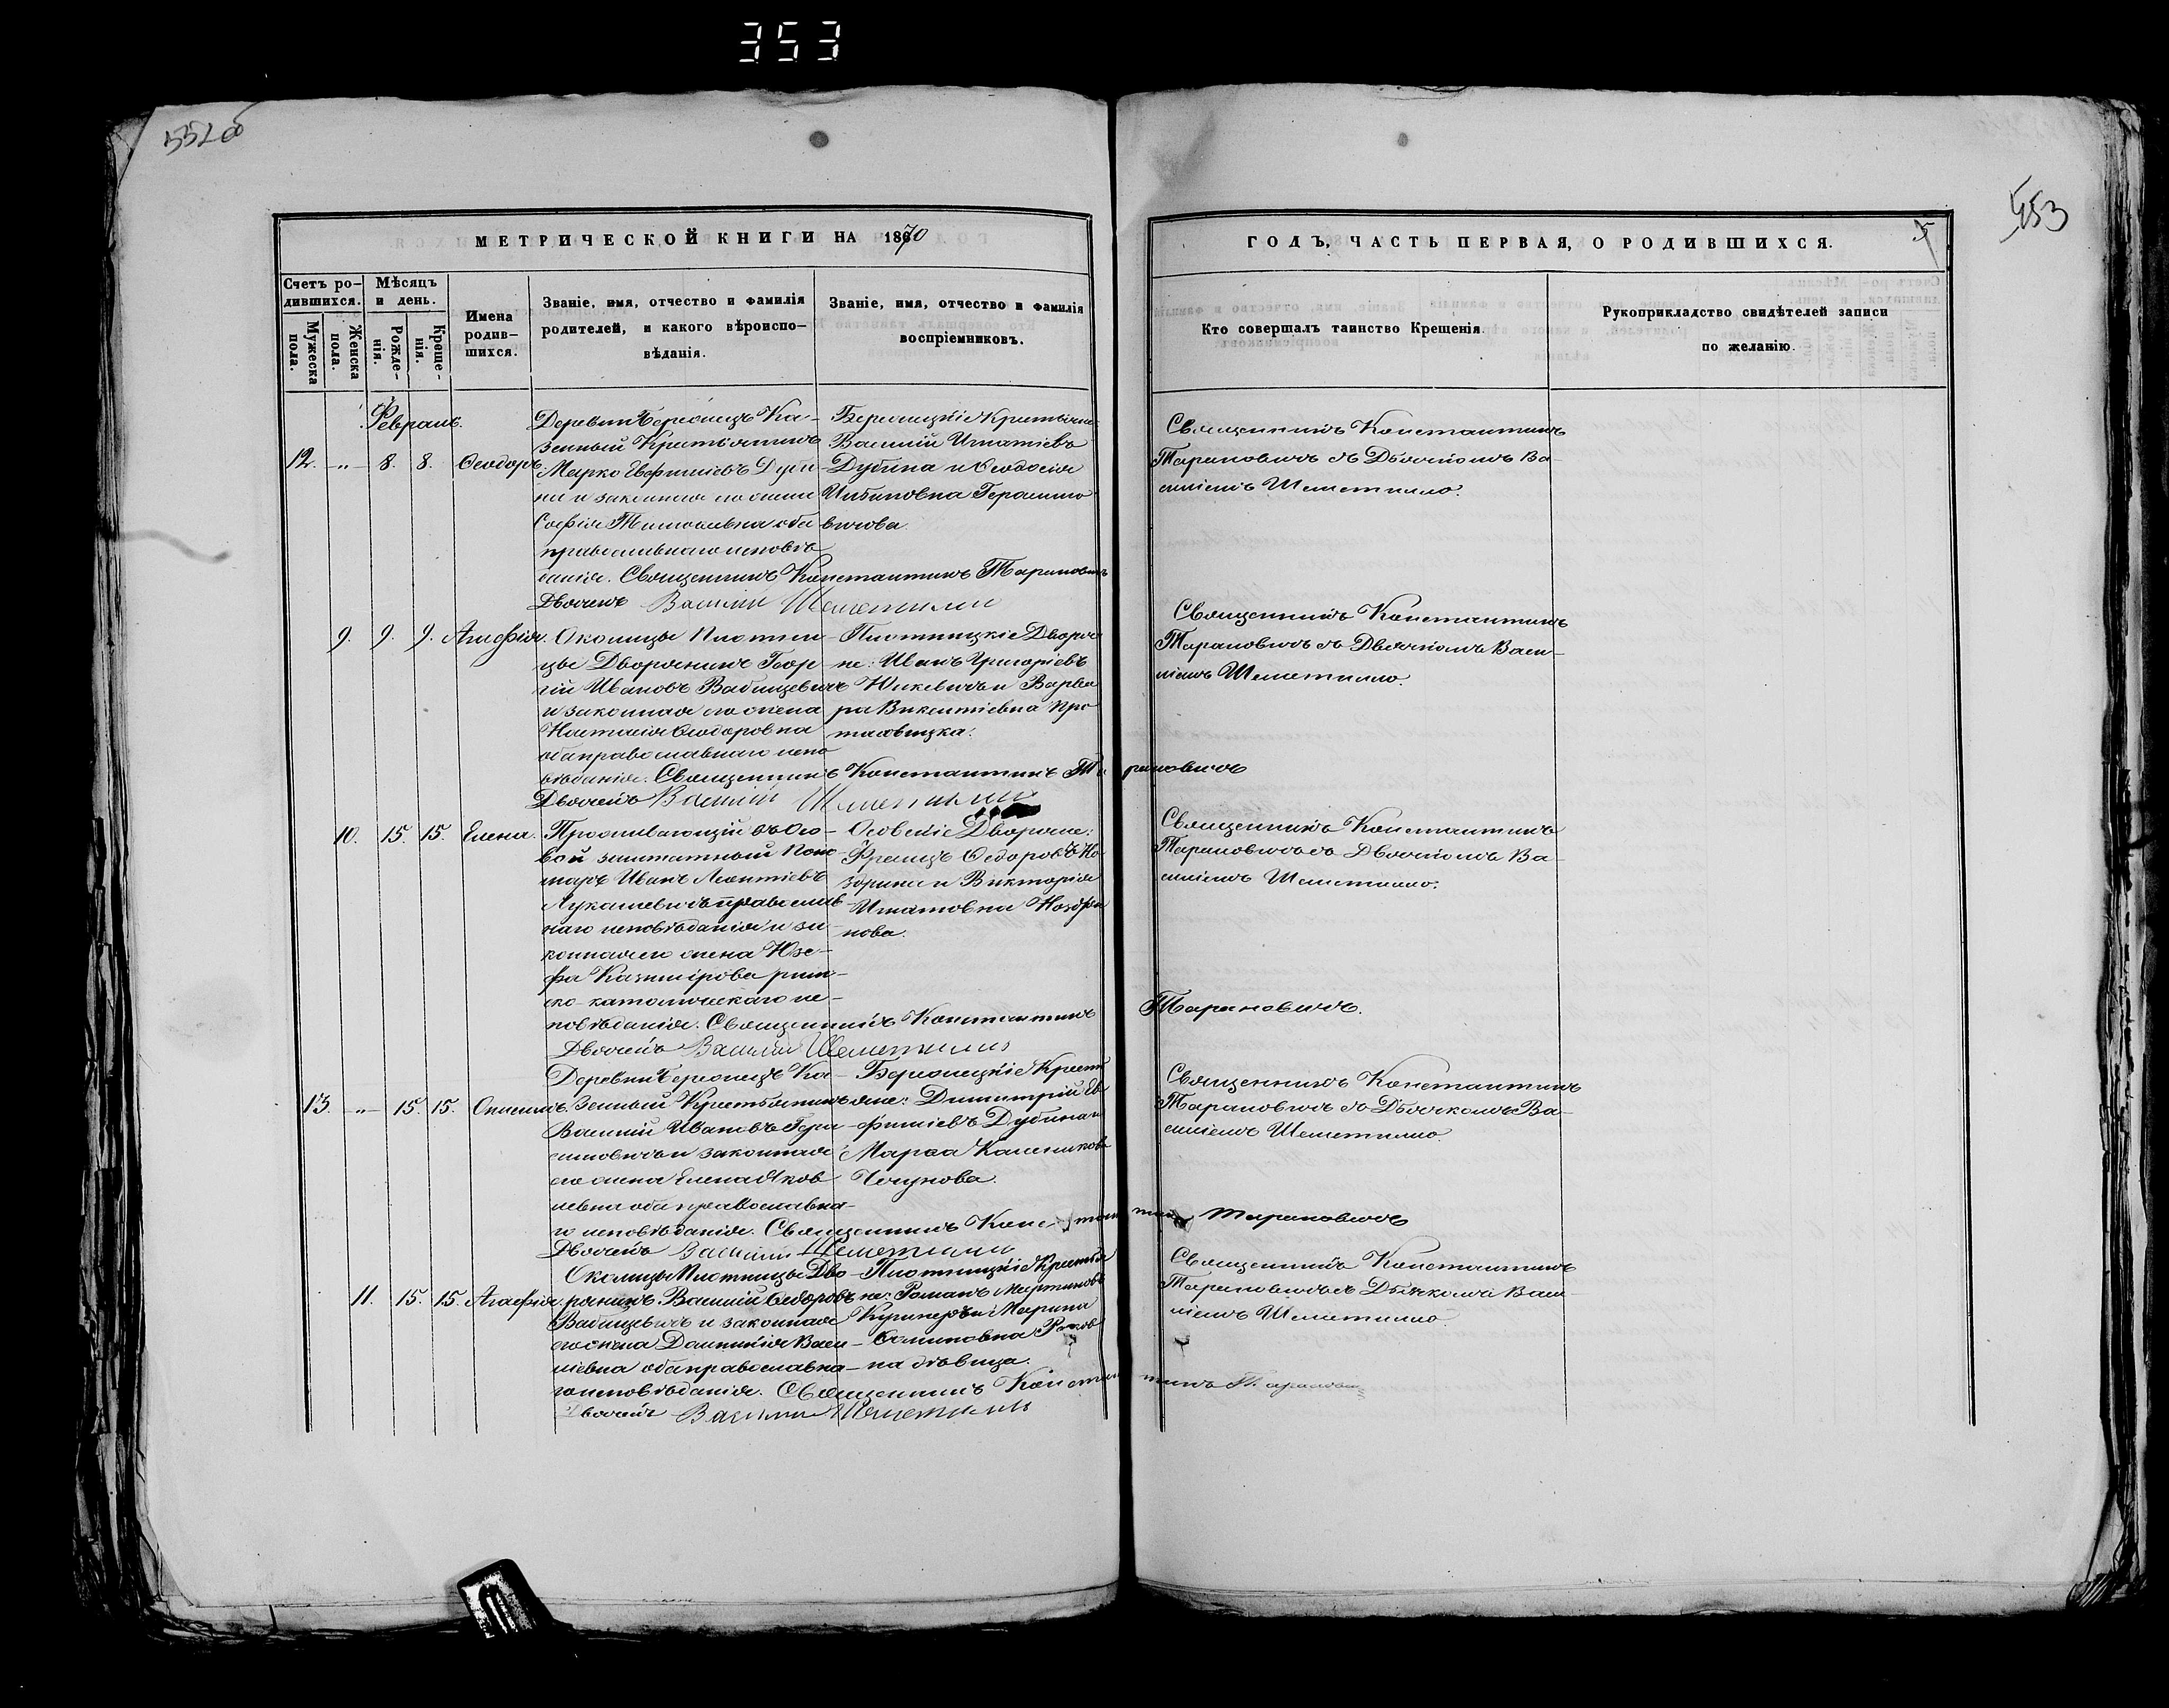 353
352 об
353
МЕТРИЧЕСКОЙ КНИГИ НА 1870
ГОДЪ, ЧАСТЬ ПЕРВАЯ, О РОДИВШИХСЯ.
5
Счетъ ро-
дившихся.
Мужеска
пола.
Женска
пола.
Мѣсяцъ
и день.
Рожде-
нія.
Креще-
нія.
Имена
родив-
шихся.
Званіе, имя, отчество и фамилія
родителей, и какого вѣроиспо-
вѣданія.
Званіе, имя, отчество и фамилія
воспріемниковъ.
Кто совершалъ таинство Крещенія.
Рукоприкладство свидѣтелей записи
по желанію.
Февраль.
12. -"- 8. 8. Ѳеодоръ
Деревни Бережецъ Ка-
зенный Крестьянинъ
Марко Евфиміевъ Дуби-
на и законная его жена
Софія Тимоѳеевна оба
православнаго исповѣ
данія. Священникъ Константинъ Тарановичъ
Дьячекъ Василій Шеметилло
Василій Игнатіевъ
Дубина и Ѳеодосія
Герасимо
вичова.
Священникъ Константинъ
Тарановичъ съ Дьячкомъ Ва-
силіемъ Шеметилло.
9. 9. 9. Агафія.
Околицы Плотни-
цы Дворянинъ Геор-
гій Ивановъ Вабищевичъ
и законная его жена
Настасія Ѳеодоровна
оба православнаго испо
вѣданія. Священникъ Константинъ Тарановичъ
Дьячекъ Василій Шеметилло
Плотницкіе Дворя
не: Иванъ Григоріевъ
и Варва
ра Викентіевна Про
тасовицка.
Священникъ Константинъ
Тарановичъ съ Дьячкомъ Васи-
ліемъ Шеметилло.
10. 15. 15. Елена.
Проживающій въ Осо-
вой заштатный Поно-
марь Иванъ Леонтіевъ
Лукашевичъ православ
наго исповѣданія и за-
конная его жена Юзе-
фа Казимірова рим-
ско-католическаго ис-
повѣданія. Священникъ Константинъ
Тарановичъ.
Дьячекъ Василій Шеметилло
Осовскіе Дворяне:
Францъ Ѳедоровъ Но-
здринъ и Викторія
Игнатовна Ноздри
нова.
Священникъ Константинъ
Тарановичъ съ Дьячкомъ Ва-
силіемъ Шеметилло.
13. -"- 15. 15. Онисимъ.
Деревни Бережецъ Ка-
зенный Крестьянинъ
Василій Ивановъ Гера-
симовичъ и законная
его жена Елена Яков
левна оба православна-
го исповѣданія. Священникъ Константинъ Тарановичъ
Дьячекъ Василій Шеметилло
Бережецкіе Кресть
яне: Димитрій Ев-
фиміевъ Дубина и
Марѳа
Священникъ Константинъ
Тарановичъ съ Дьячкомъ Ва-
силіемъ Шеметилло.
11. 15. 15. Агафія.
Околицы Плотницы Дво-
рянинъ Василій Ѳедоровъ
Вабищевичъ и законная
его жена Домникія Васи-
ліевна оба православна-
го исповѣданія. Священникъ Константинъ Тарановичъ
Дьячекъ Василій Шеметилло
Плотницкіе Крестья
не: Романъ Мартиновъ
и Марина
на дѣвица.
Священникъ Константинъ
Тарановичъ съ Дьячкомъ Васи-
ліемъ Шеметилло.